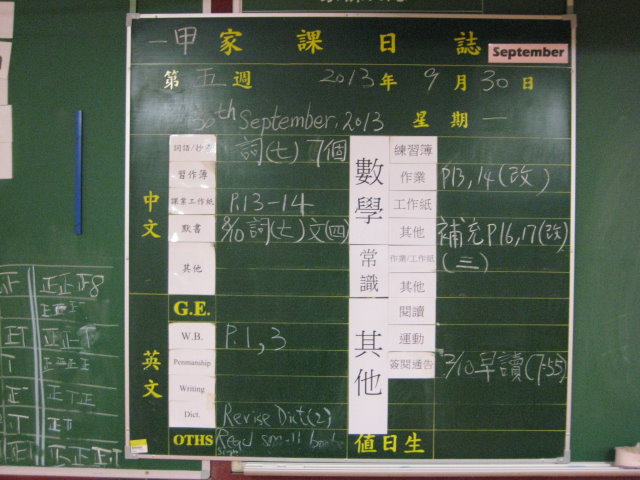 一甲 家課日誌 September
第五週 2013年9月30日
30th September, 2013 星期一
詞語/抄寫 詞(七) 7個
習作簿
中文 課業工作紙 P.13-14
默書 8/10 詞(七)文(四)
其他
G.E.
英文 W.B. P.1,3
Penmanship
Writing
Dict. Revise Dict(2)
OTHS Read small
數學 練習簿
作業 P13,14(改)
工作紙
其他 補充P16,17(改)
常識 作業/工作紙 (三)
其他
其他 閱讀
運動
簽閱通告 2/10 早讀(7:55)
值日生
正 正正正8
正
正